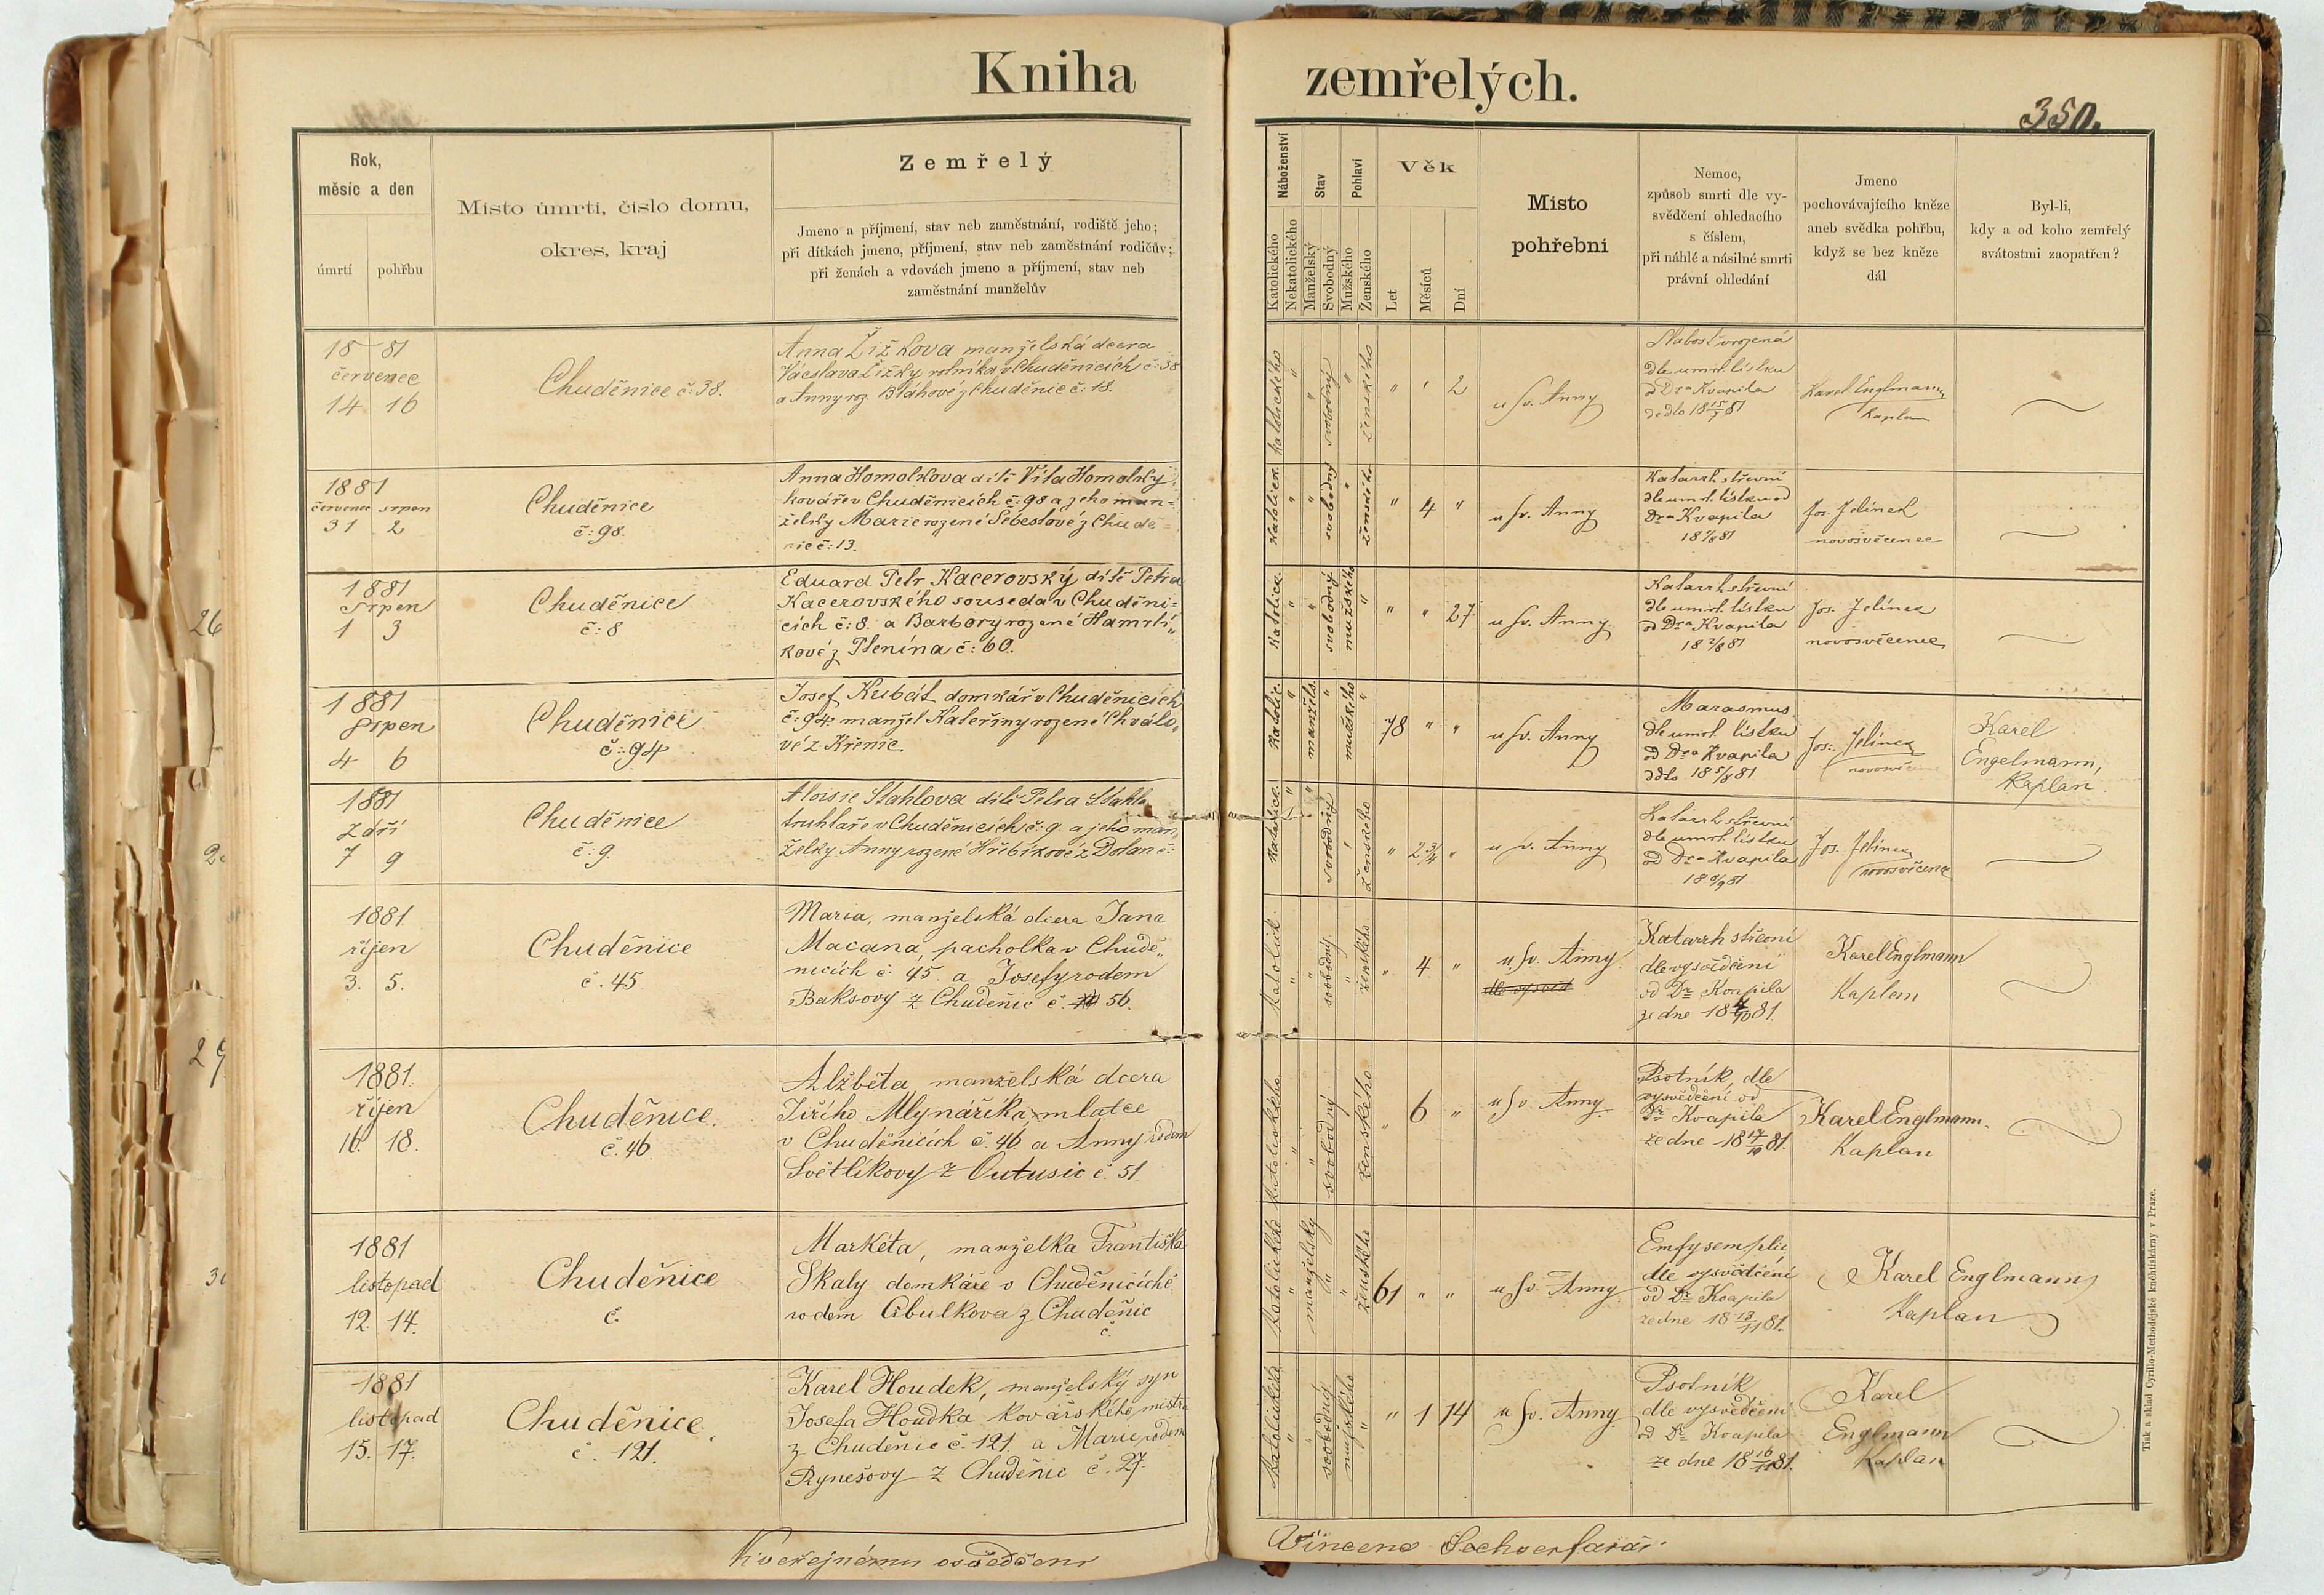 Kniha
zemřelých.
350.
Rok,
měsíc a den
úmrtí
pohřbu
Místo úmrtí, číslo domu,
okres, kraj
Zemřelý
Jmeno a příjmení, stav neb zaměstnání, rodiště jeho;
při dítkách jmeno, příjmení, stav neb zaměstnání rodičův;
při ženách a vdovách jmeno a příjmení, stav neb
zaměstnání manželův
Náboženství
Katolického
Nekatolického
Stav
Manželský
Svobodný
Pohlaví
Mužského
Ženského
Věk
Let
Měsíců
Dní
Místo
pohřební
Nemoc,
způsob smrti dle vy-
svědčení ohledacího
s číslem,
při náhlé a násilné smrti
právní ohledání
Jmeno
pochovávajícího kněze
aneb svědka pohřbu,
když se bez kněze
dál
Byl-li,
kdy a od koho zemřelý
svátostmi zaopatřen?
1881
červenec
14 16
Chuděnice č: 38.
Anna Žižkova manželská dcera
Václava Žižky rolníka v Chuděnicích č: 38
a Anny roz. Bláhové z Chuděnic č: 18.
katolického " " svobodný " ženského
" ' 2
u sv. Anny
Slabost vrozená
dle umrl. lístku
od Dra Kvapila
ddto 18 15/7 81
Karel Englmann
Kaplan
1881
červenec srpen
31 2
Chuděnice
č: 98.
Anna Homolkova dítě Víta Homolky
kováře v Chuděnicích č: 98 a jeho man=
želky Marie rozené Šebestové z Chudě=
nic č: 13.
katolick. " " svobodný " ženského
" 4 "
u sv. Anny
Katarrh střevní
dle umrl. lístku od
Dra Kvapila
18 1/8 81
Jos. Jelínek
novosvěcenec
1881
Srpen
1 3
Chuděnice
č: 8
Eduard Petr Kacerovský dítě Petra
Kacerovského souseda v Chuděni=
cích č: 8. a Barbory rozené Hamrlí"
kové z Plenína č: 60.
katolic. " " svobodný mužského "
" " 27
u sv. Anny
Katarrh střevní
dle umrl. lístku
od Dra Kvapila
18 2/8 81
Jos. Jelínek
novosvěcenec
1881
Srpen
4 6
Chuděnice
č: 94
Josef Kubát domkář v Chuděnicích
č: 94 manžel Kateřiny rozené Chválo"
vé z Křenic
katolic. " manžels. " mužského "
78 " "
u sv. Anny
Marasmus
dle umrl. lístku
od Dra Kvapila
ddto 18 5/8 81
Jos. Jelínek
Karel
Engelmann,
Kaplan.
1881
Září
7 9
Chuděnice
č: 9.
Aloisie Stahlova dítě Petra Stahla
truhláře v Chuděnicích č: 9. a jeho man"
želky Anny rozené Hřebíkové z Dolan č:
katolic. " " svobodný " ženského
" 2 3/4 "
u sv. Anny
Katarrh střevní
dle umrl. lístku
od Dra Kvapila
18 8/9 81
Jos. Jelínek
novosvěcenec
1881
říjen
3. 5.
Chuděnice
č. 45
Maria, manželská dcera Jana
Macana, pacholka v Chudě"
nicích č. 45 a Josefy rodem
Baksovy z Chuděnic č. 56.
katolick. " " svobodný " ženského
" 4 "
u sv. Anny
dle vysvěd
Katarrh střevní
dle vysvědčení
od Dr Kvapila
ze dne 18 4/10 81.
Karel Englmann
Kaplan
1881.
říjen
16. 18.
Chuděnice.
č. 46
Alžběta, manželská dcera
Jiřího Mlynáříka, mlatce
v Chuděnicích č. 46 a Anny rodem
Světlíkovy z Outušic č. 51.
katolického " " svobodný ženského
" 6 "
u sv. Anny
Psotník, dle
vysvědčení od
Dr Kvapila
ze dne 18 17/10 81.
Karel Englmann.
Kaplan
1881
listopad
12. 14.
Chuděnice
č.
Markéta, manželka Františka
Skaly domkáře v Chuděnicích č.
rodem Cibulkova z Chuděnic
č.
katolického " manželský " " ženského
61 " "
u sv. Anny
Emfysem plic
dle vysvědčení
od Dr Kvapila
ze dne 18 13/11 81.
Karel Englmann
Kaplan
1881
listopad
15. 17.
Chuděnice.
č. 121.
Karel Houdek, manželský syn
Josefa Houdka kovářského mistra
z Chuděnic č. 121. a Marie rodem
Rynešovy z Chuděnic č. 27.
katolického " " svobodný mužského "
" 1 14
u sv. Anny
Psotník
dle vysvědčení
od Dr Kvapila
ze dne 18 16/11 81.
Karel
Englmann
Kaplan
K veřejnému osvědčení
Vincenc farář.
Tisk a sklad Cyrillo-Methodějské knihtiskárny v Praze.
26
29